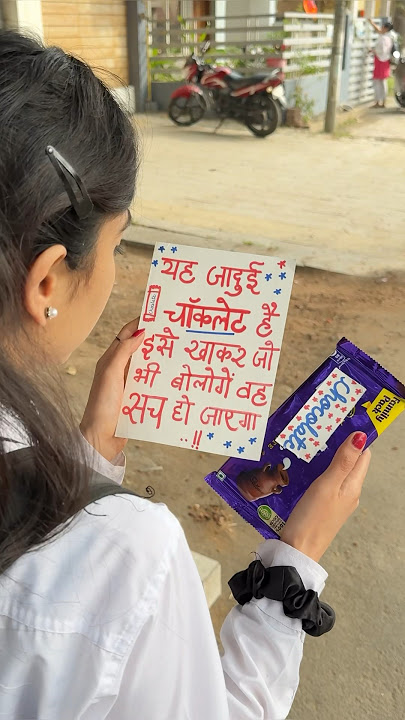 यह जादुई
चॉकलेट है
इसे खाकर जो
भी बोलोगें वह
सच हो जाएगा
..!!
Family
Pack
Chocolate